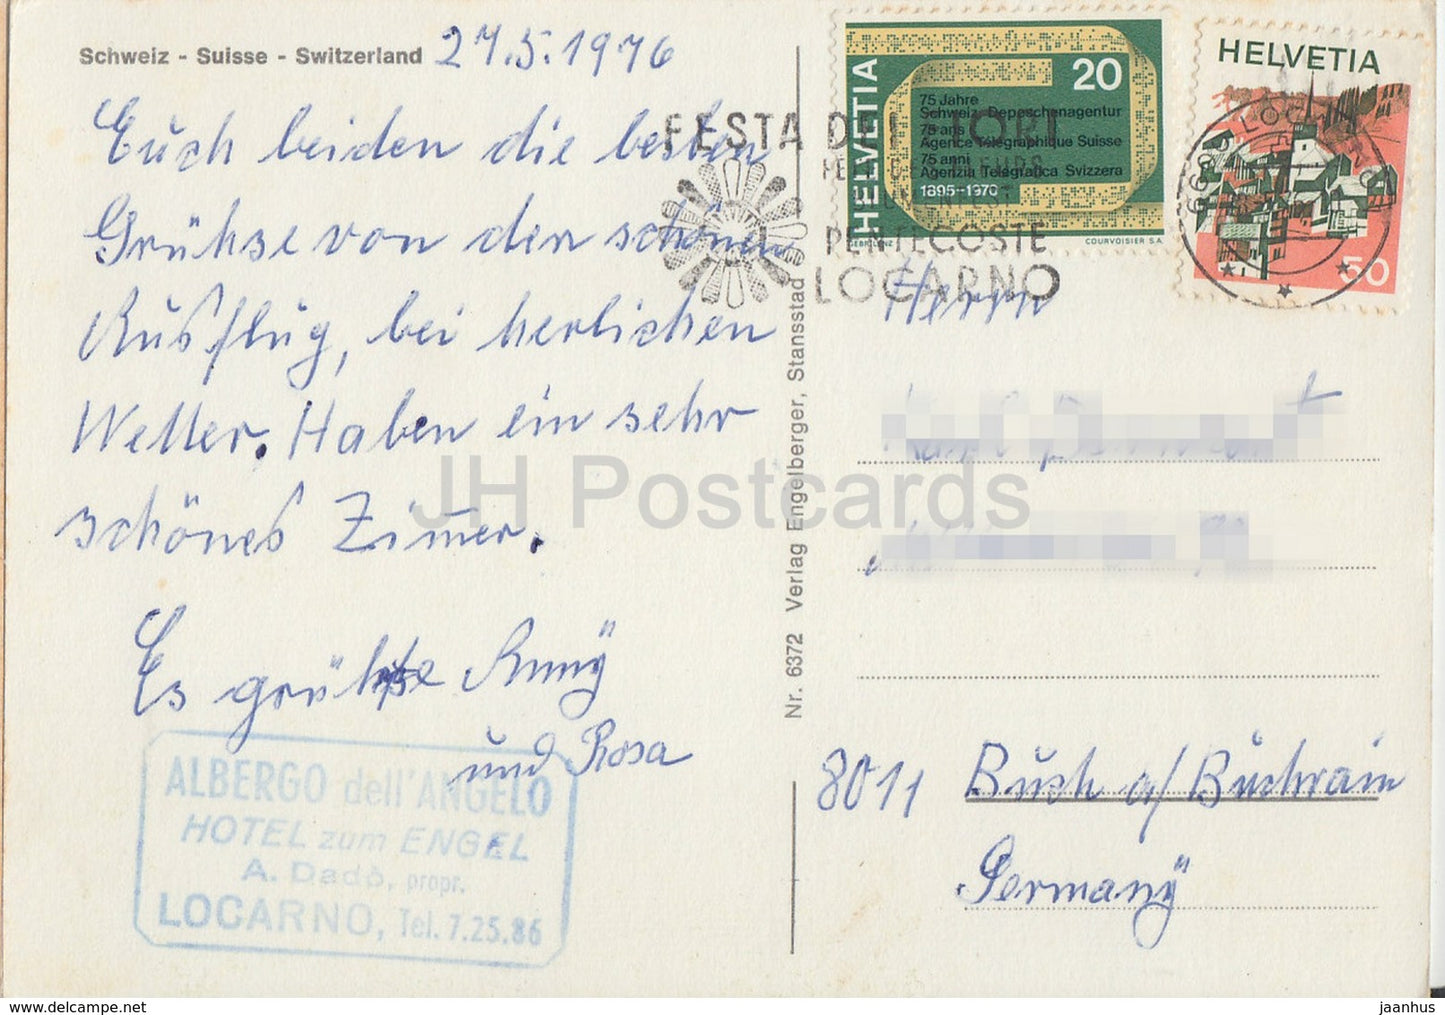 Schweiz - Suisse - Switzerland 27.5.1976
Euch beiden die besten
Grühse von den schönen
Ausflug, bei herlichen
Wetter. Haben ein sehr
schönes Zimmer.
Es grühße Anny
und Rosa
ALBERGO dell'ANGELO
HOTEL zum ENGEL
A. Dadò, propr.
LOCARNO, Tel. 7.25.86
Nr. 6372 Verlag Engelberger, Stansstad
FESTA DEI FIORI
PENTECOSTE
LOCARNO
HELVETIA
20
75 Jahre
Schweiz. Depeschenagentur
75 ans
Agence Télégraphique Suisse
75 anni
Agenzia Telegrafica Svizzera
1895-1970
COURVOISIER S.A.
HELVETIA
50
LOCARNO
Herrn
8011 Buch a/ Buchrain
Germany
JH Postcards
https://www.hippostcard.com/store/jaanhus